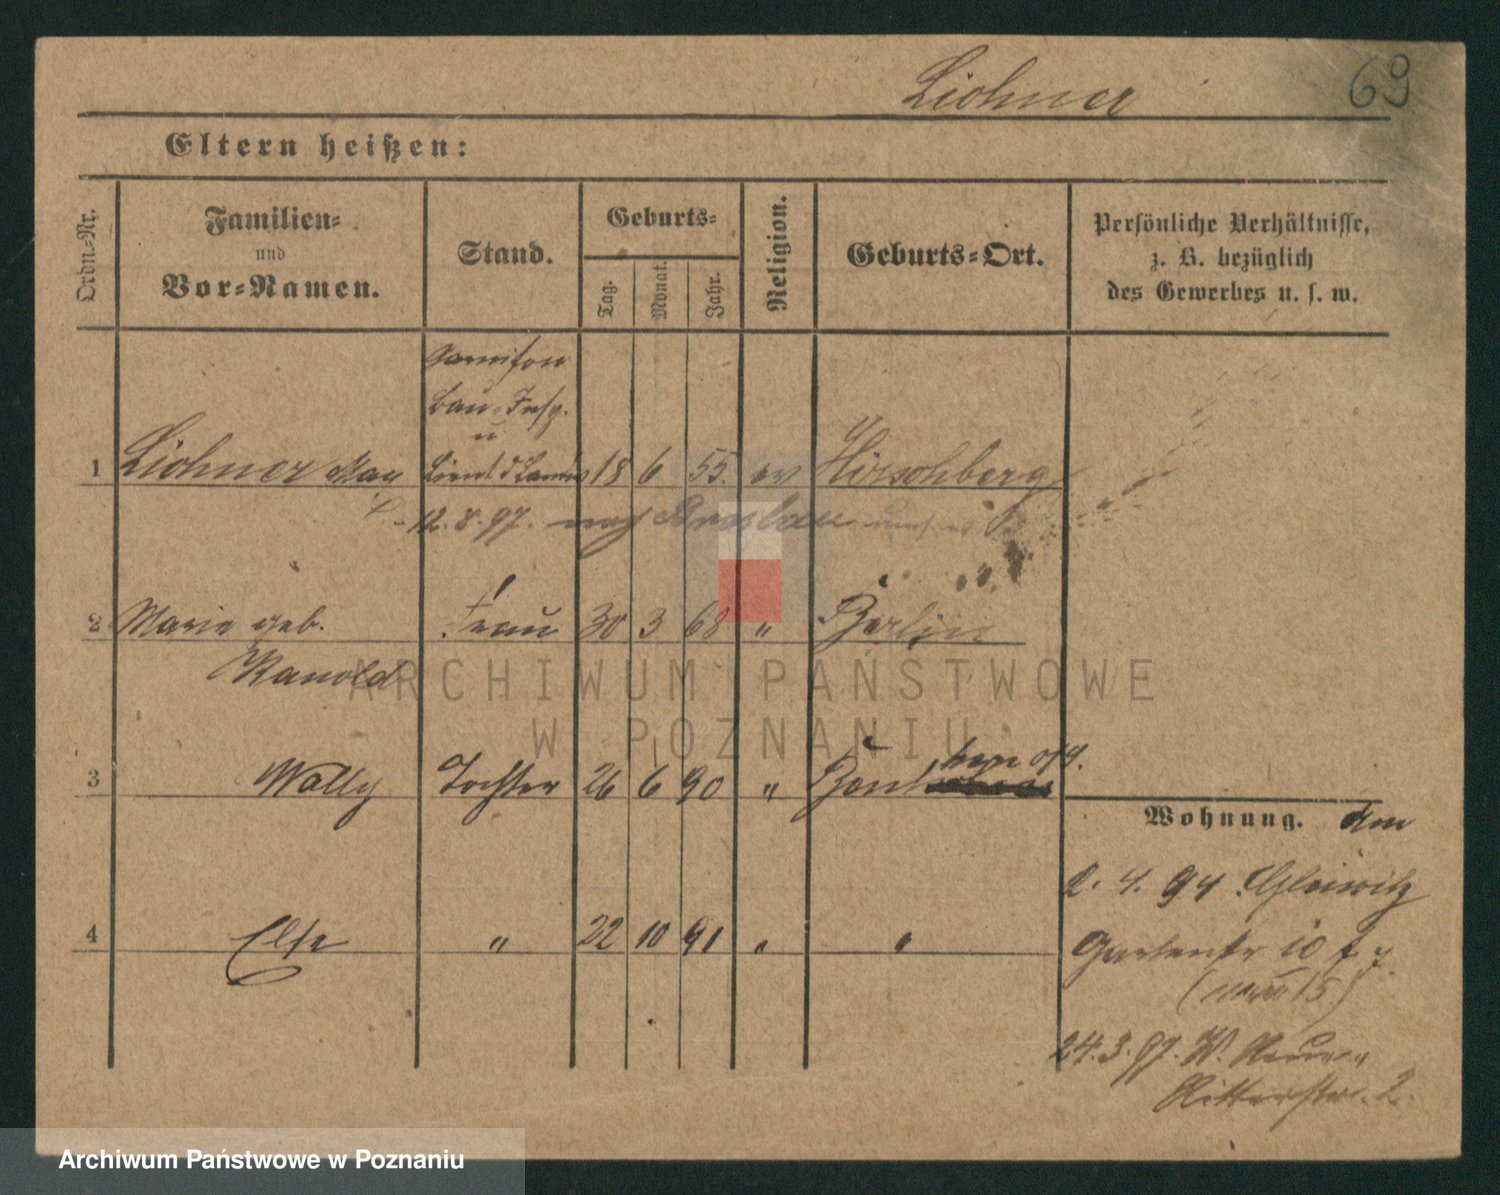 Lichner 69
Eltern heißen:
Ordn.-Nr. Familien- und Vor-Namen. Stand. Geburts- Tag. Monat. Jahr. Religion. Geburts-Ort. Persönliche Verhältnisse, z. B. bezüglich des Gewerbes u. s. w.
Garnison
Bau-Insp.
u
1 Lichner Max Lieut d 18 6 55. ev Hirschberg
12.8.97. nach Breslau
2 Marie geb. Frau 30 3 68 " Berlin
Kanold
3 Wally Tochter 26 6 90 " Beuthen o/S.
Wohnung. von
2. 4. 94 Gleiwitz
4 Else " 22 10 91 " "
Gartenstr 10
15)
24.3.97. W.
Ritterstr. 2.
ARCHIWUM PAŃSTWOWE
W POZNANIU
Archiwum Państwowe w Poznaniu